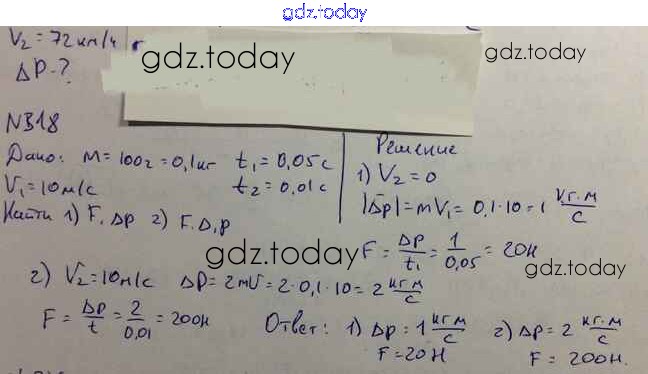 gdz.today
V₂ = 72 км/ч
gdz.today
gdz.today
ΔP - ?
N318
Дано: m = 100г = 0,1кг t₁ = 0,05с
V₁ = 10м/с t₂ = 0,01с
Найти 1) F, Δp 2) F, Δ, p
Решение
1) V₂ = 0
|Δp| = mV₁ = 0,1·10 = 1 кг·м/с
F = Δp/t₁ = 1/0,05 = 20Н
gdz.today
gdz.today
2) V₂ = 10м/с Δp = 2mV = 2·0,1·10 = 2 кг·м/с
F = Δp/t = 2/0,01 = 200Н
Ответ: 1) Δp = 1 кг·м/с 2) Δp = 2 кг·м/с
F = 20Н F = 200Н.
gdz.today